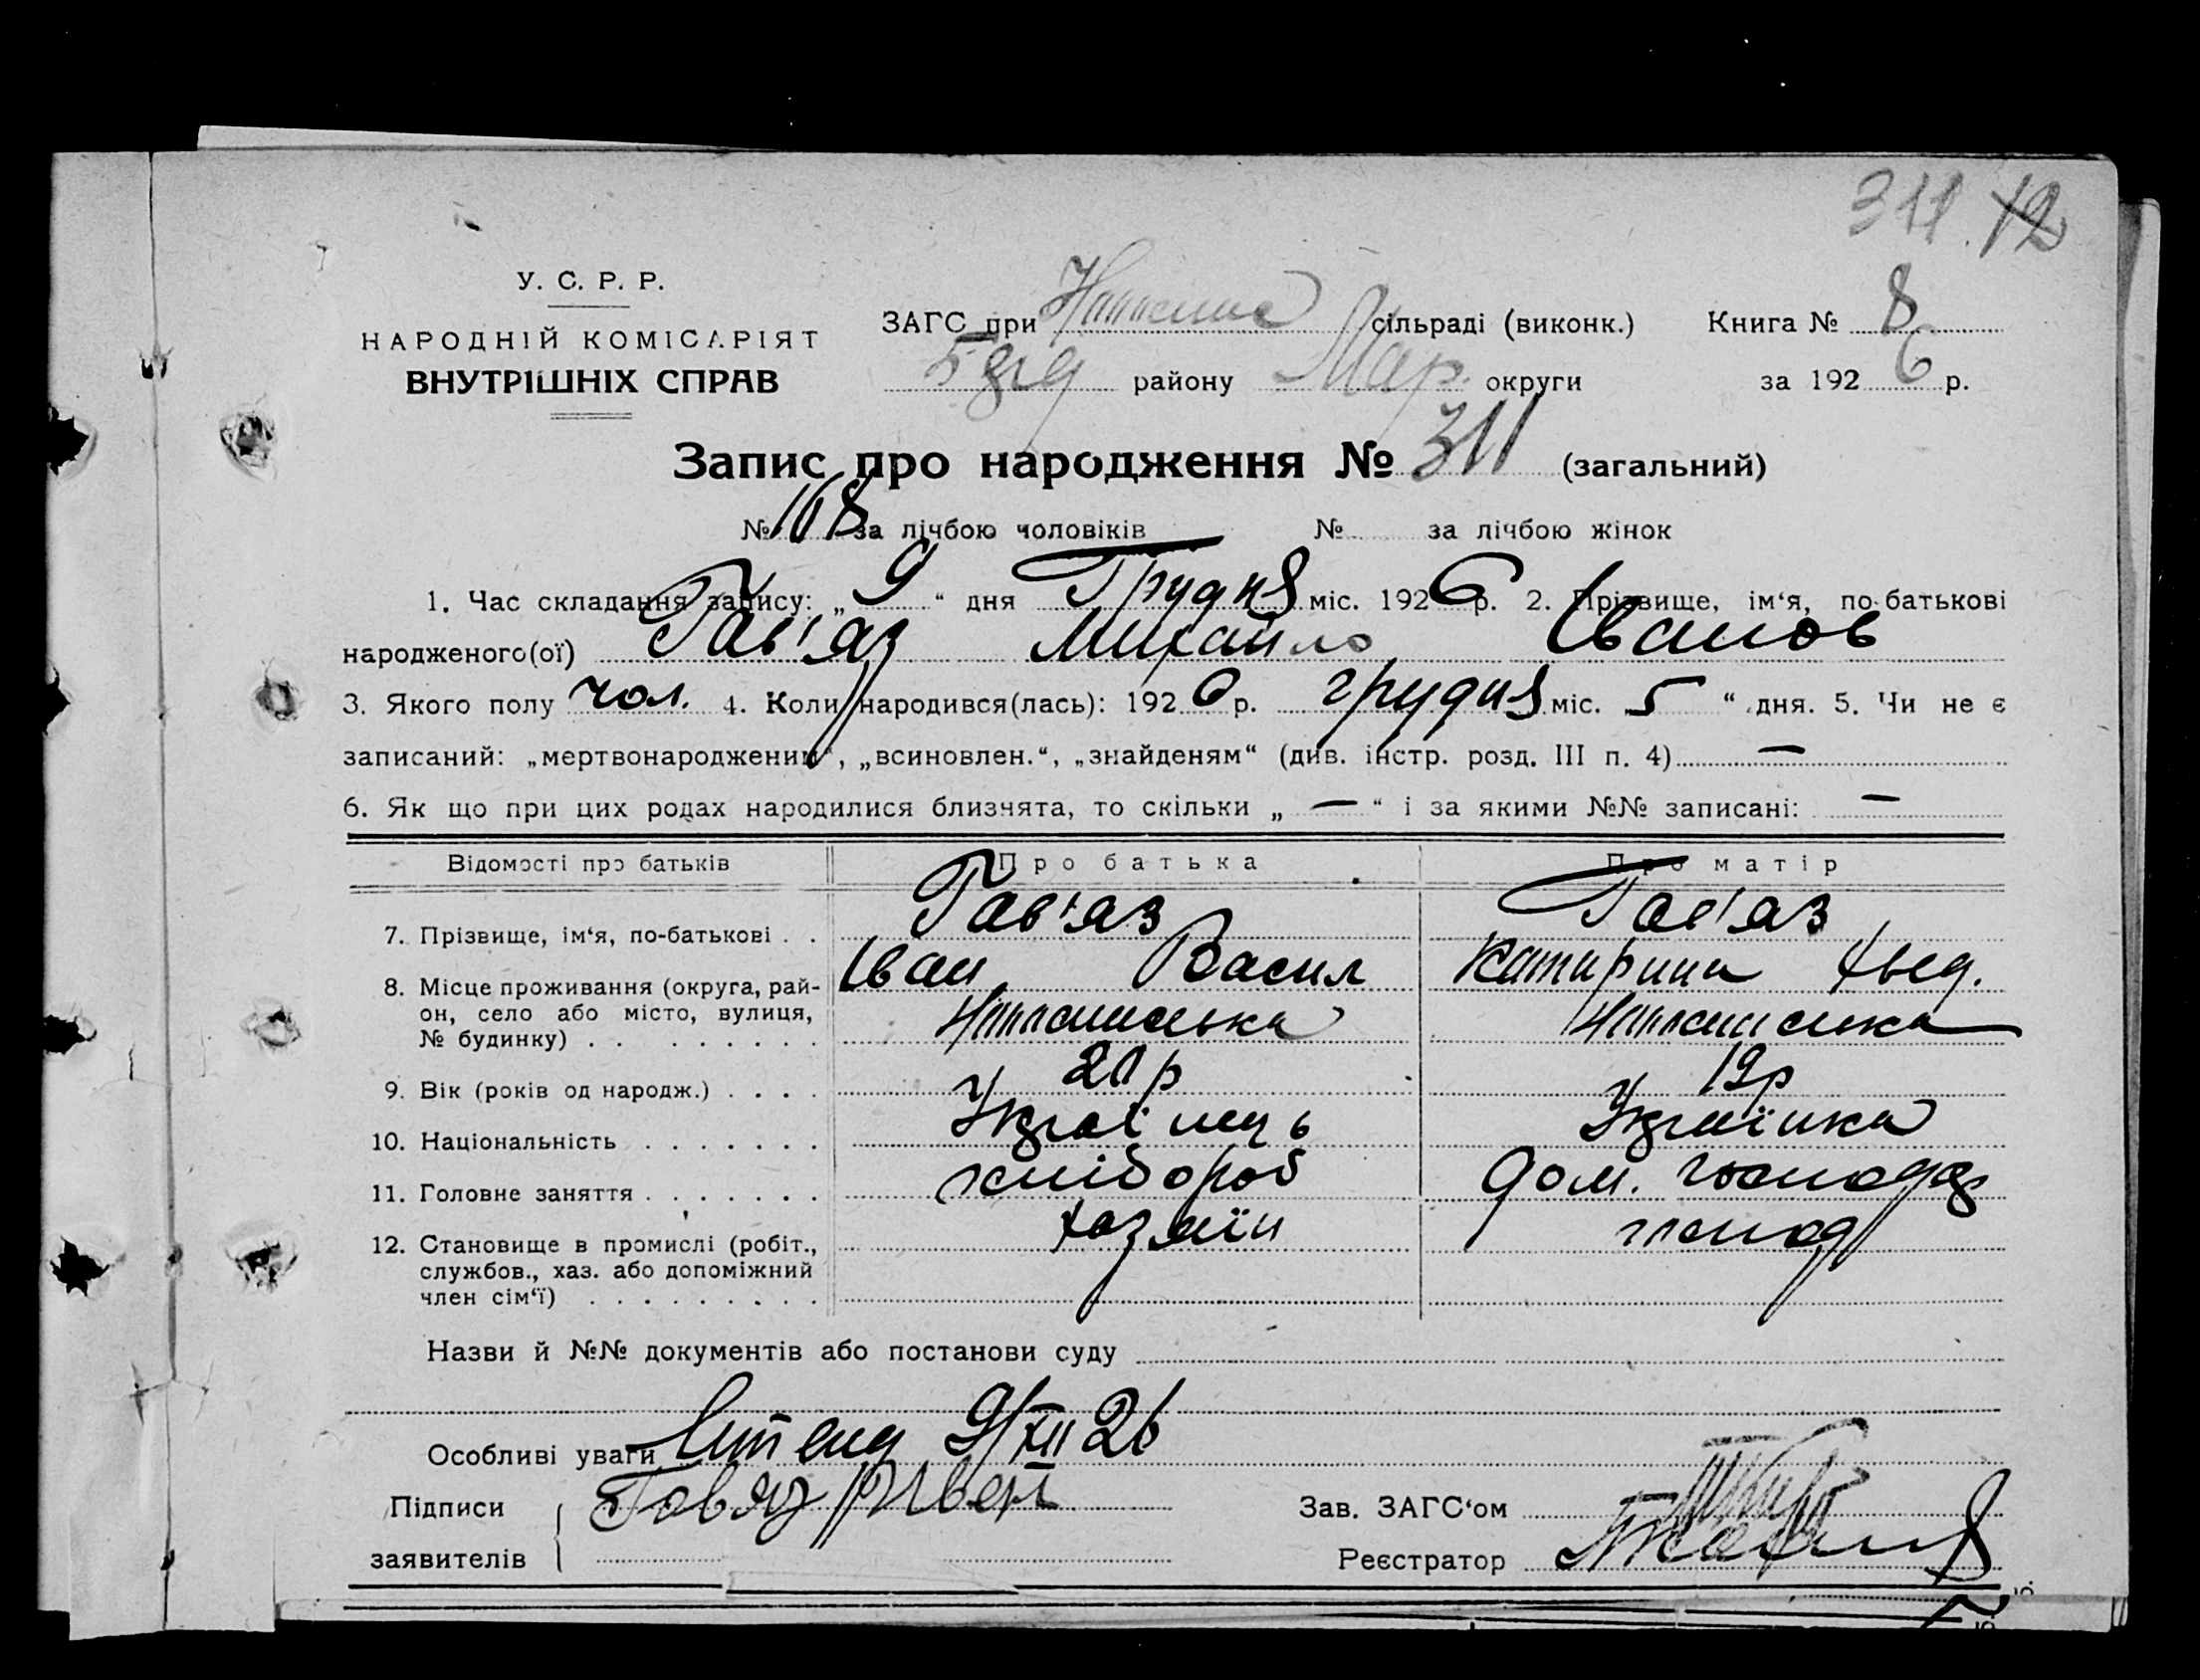 311. 12
У. С. Р. Р.
НАРОДНІЙ КОМІСАРІЯТ
ВНУТРІШНІХ СПРАВ
ЗАГС при сільраді (виконк.) Книга № 8
району Мар. округи за 192 6 р.
Запис про народження № 311 (загальний)
№ 168 за лічбою чоловіків № за лічбою жінок
1. Час складання запису: „ 9 “ дня Грудня міс. 192 6 р. 2. Прізвище, ім‘я, по-батькові
народженого(ої) Гав'яз Михайло Іванов
3. Якого полу чол. 4. Коли народився(лась): 192 6 р. грудня міс. 5 “ дня. 5. Чи не є
записаний: „мертвонародженим“, „всиновлен.“, „знайденям“ (див. інстр. розд. III п. 4) —
6. Як що при цих родах народилися близнята, то скільки „ — “ і за якими №№ записані: —
Відомості про батьків Про батька Про матір
7. Прізвище, ім‘я, по-батькові . . Гав'яз Гав'яз
Іван Васил Катирина Хвед.
8. Місце проживання (округа, рай-
он, село або місто, вулиця,
№ будинку) . . . . . . . . .
9. Вік (років од народж.) . . . . 20 р 19 р
10. Національність . . . . . . . Українець Українка
11. Головне заняття . . . . . . . хлібороб дом. господар
12. Становище в промислі (робіт., хазяїн
службов., хаз. або допоміжний
член сім‘ї) . . . . . . . . .
Назви й №№ документів або постанови суду
Особливі уваги 9/XII 26
Підписи Гавяз
заявителів
Зав. ЗАГС‘ом
Реєстратор